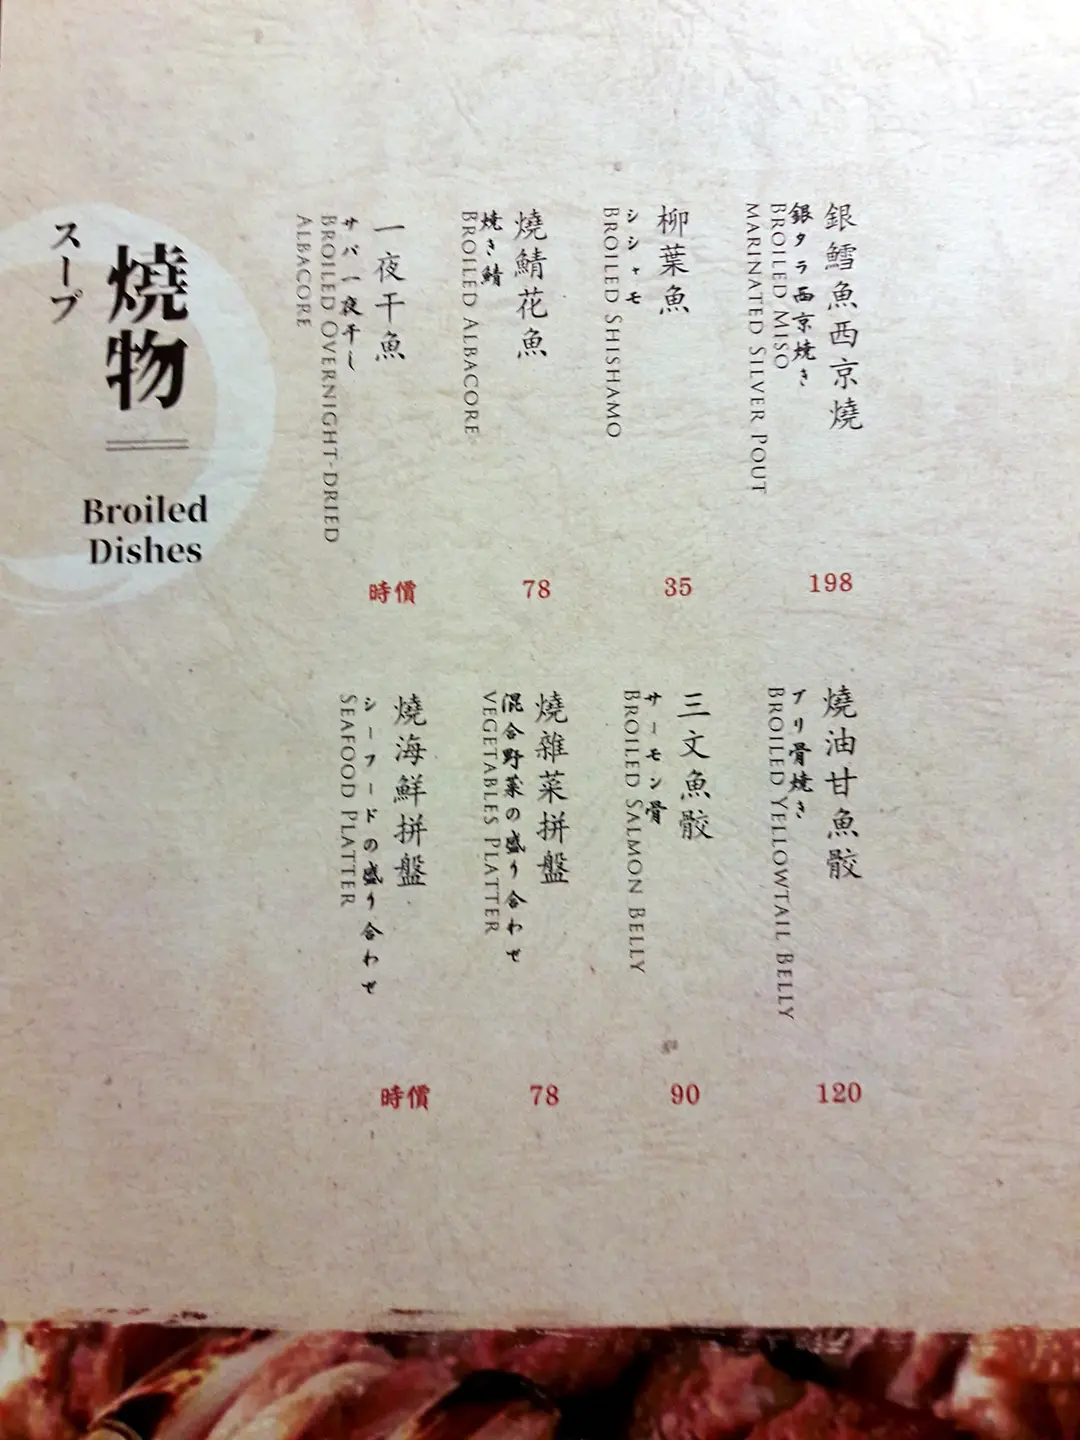 銀鱈魚西京燒
銀タラ西京焼き
BROILED MISO
MARINATED SILVER POUT
198
柳葉魚
シシャモ
BROILED SHISHAMO
35
燒鯖花魚
焼き鯖
BROILED ALBACORE
78
一夜干魚
サバ一夜干し
BROILED OVERNIGHT-DRIED
ALBACORE
時價
燒油甘魚骹
ブリ骨焼き
BROILED YELLOWTAIL BELLY
120
三文魚骹
サーモン骨
BROILED SALMON BELLY
90
燒雜菜拼盤
混合野菜の盛り合わせ
VEGETABLES PLATTER
78
燒海鮮拼盤
シーフードの盛り合わせ
SEAFOOD PLATTER
時價
燒物
スープ
Broiled
Dishes